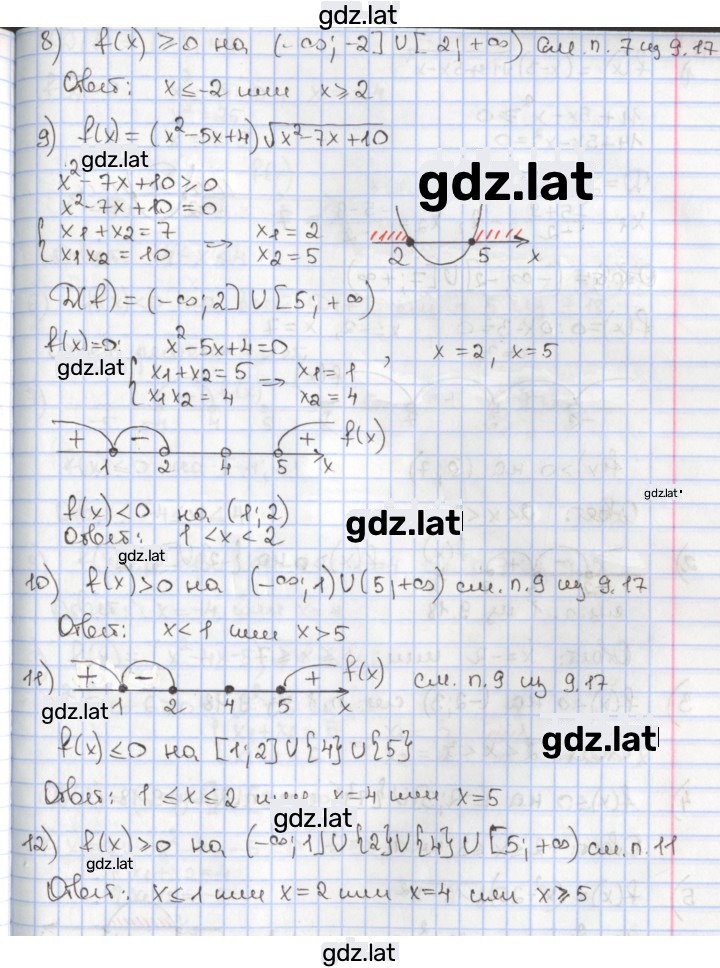 gdz.lat
8) f(x) ≥ 0 на (-∞; -2] ∪ [2; +∞) см. п. 7 из 9.17
Ответ: x ≤ -2 или x ≥ 2
9) f(x) = (x²-5x+4)√x²-7x+10
gdz.lat
gdz.lat
x² - 7x + 10 ≥ 0
x² - 7x + 10 = 0
{ x1 + x2 = 7 => x1 = 2
x1x2 = 10 x2 = 5
2 5 x
D(f) = (-∞; 2] ∪ [5; +∞)
f(x)=0: x² - 5x + 4 = 0 , x = 2, x = 5
gdz.lat
{ x1 + x2 = 5 => x1 = 1
x1x2 = 4 x2 = 4
+ - + f(x)
1 2 4 5 x
gdz.lat
f(x) < 0 на (1; 2)
gdz.lat
Ответ: 1 < x < 2
gdz.lat
10) f(x) > 0 на (-∞; 1) ∪ (5; +∞) см. п. 9 из 9.17
Ответ: x < 1 или x > 5
11) + - + f(x) см. п. 9 из 9.17
1 2 4 5 x
gdz.lat
f(x) ≤ 0 на [1; 2] ∪ {4} ∪ {5}
gdz.lat
Ответ: 1 ≤ x ≤ 2 x = 4 или x = 5
gdz.lat
12) f(x) ≥ 0 на (-∞; 1] ∪ {2} ∪ {4} ∪ [5; +∞) см. п. 11
gdz.lat
Ответ: x ≤ 1 или x = 2 или x = 4 или x ≥ 5
gdz.lat